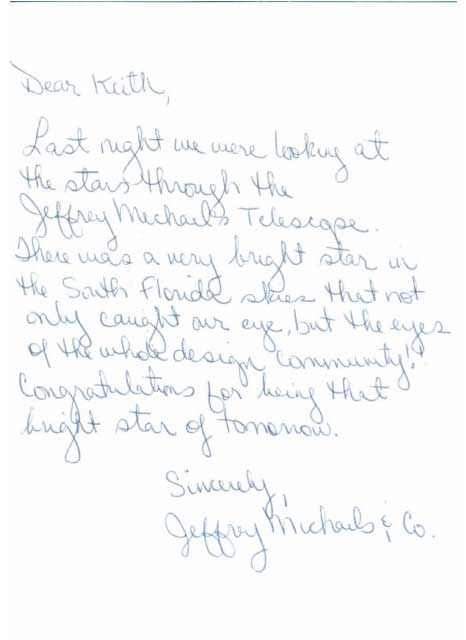 Dear Keith,
Last night we were looking at
the stars through the
Jeffrey Michaels Telescope.
There was a very bright star in
the South Florida skies that not
only caught our eye, but the eyes
of the whole design community!!
Congratulations for being that
bright star of tomorrow.
Sincerely,
Jeffrey Michaels & Co.